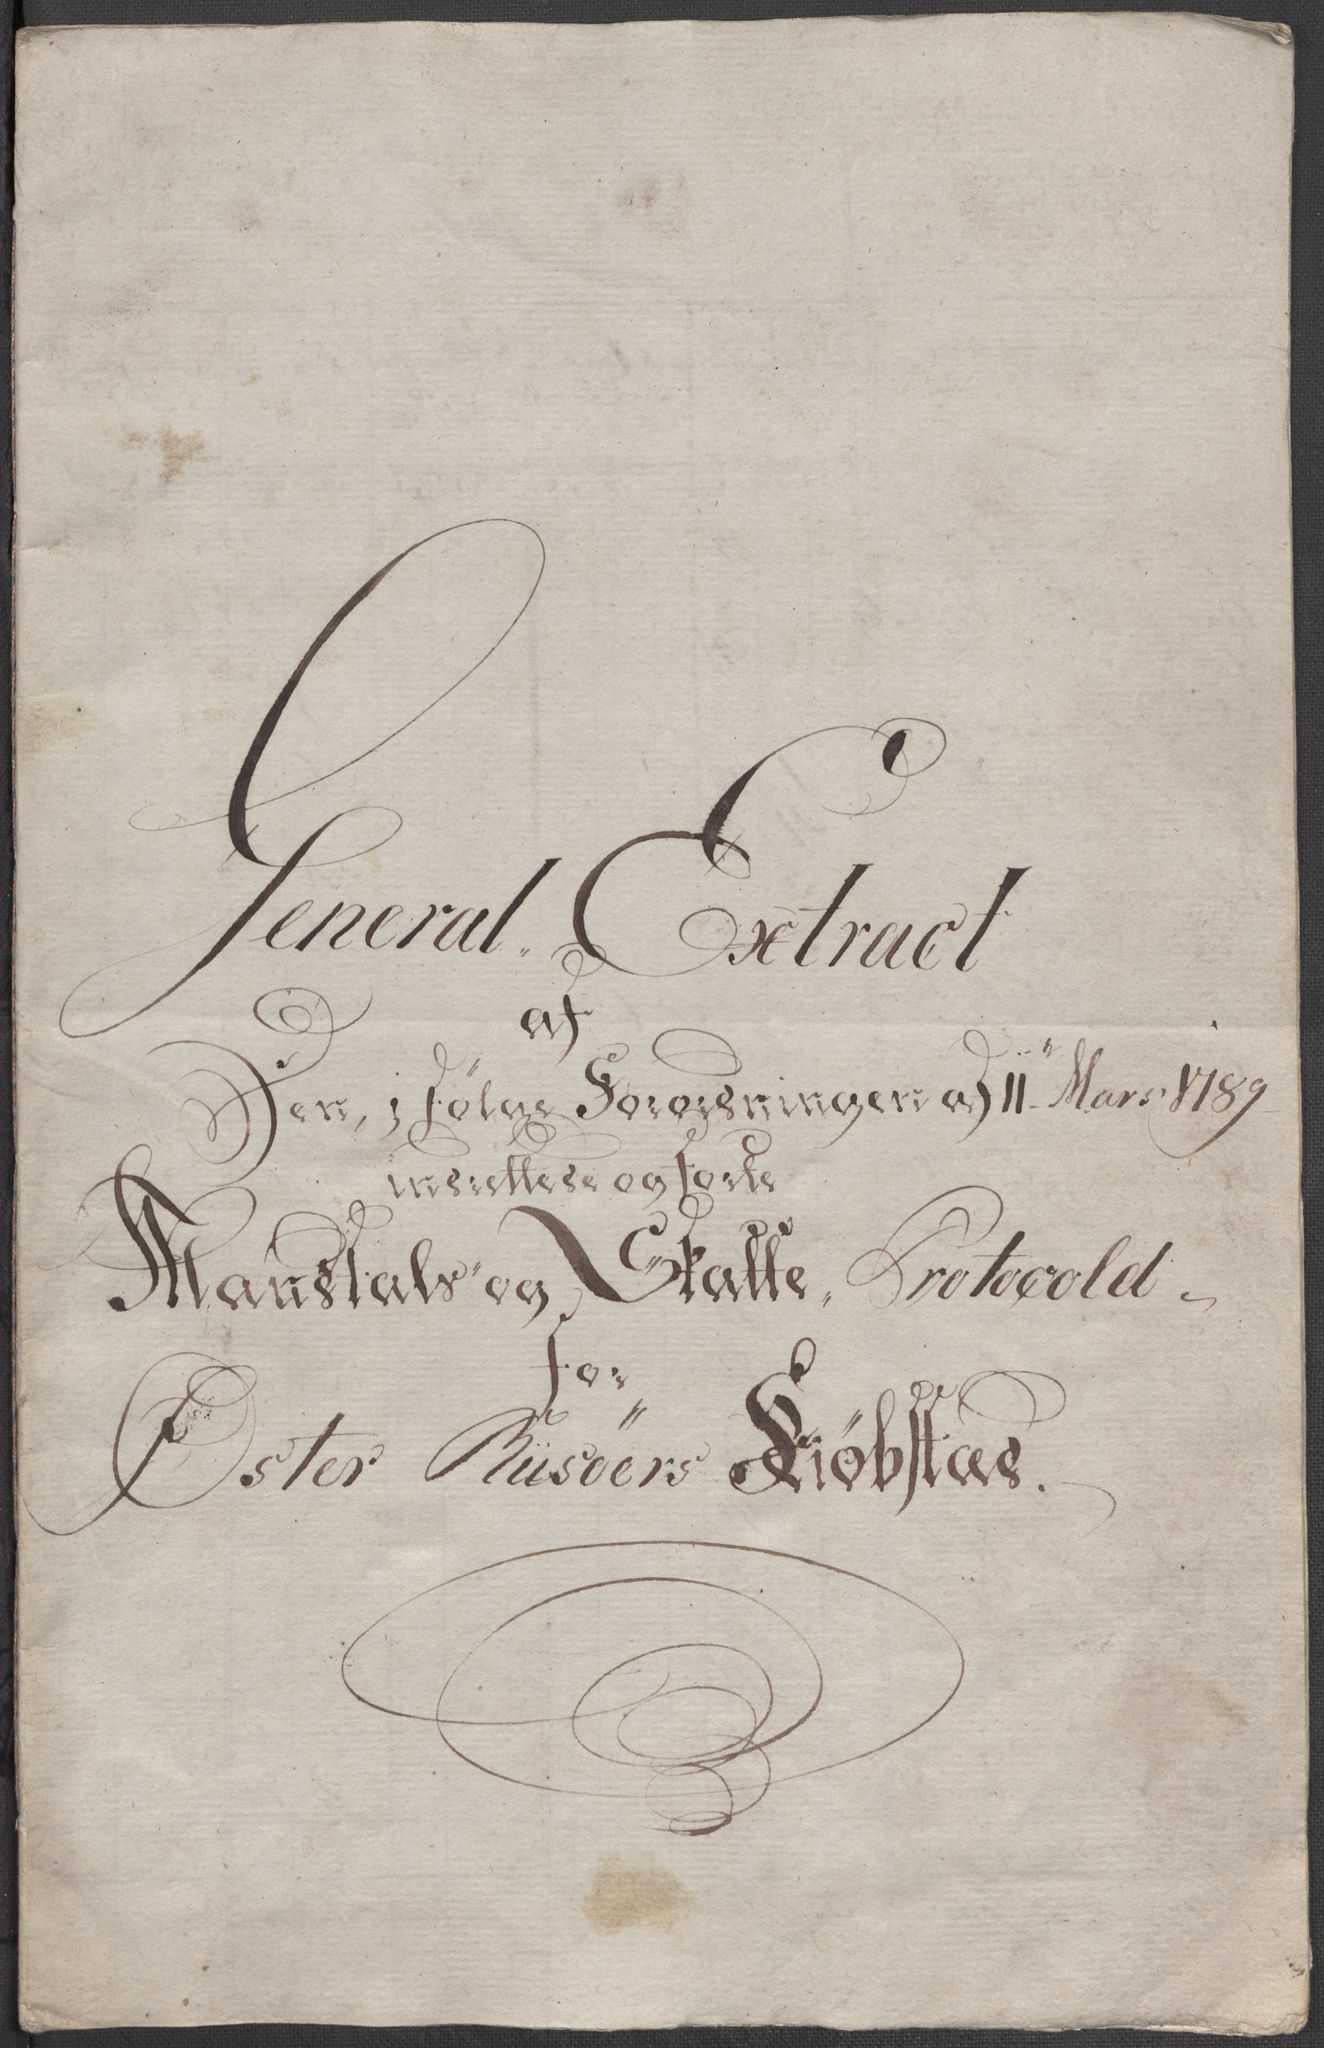 General Extract
af
Den, i følge Forordningen af 11te Mars 1789
indrettede og førte
Mandtals og Skatte Protocold
for
Øster Riisöers Kiøbstæd.